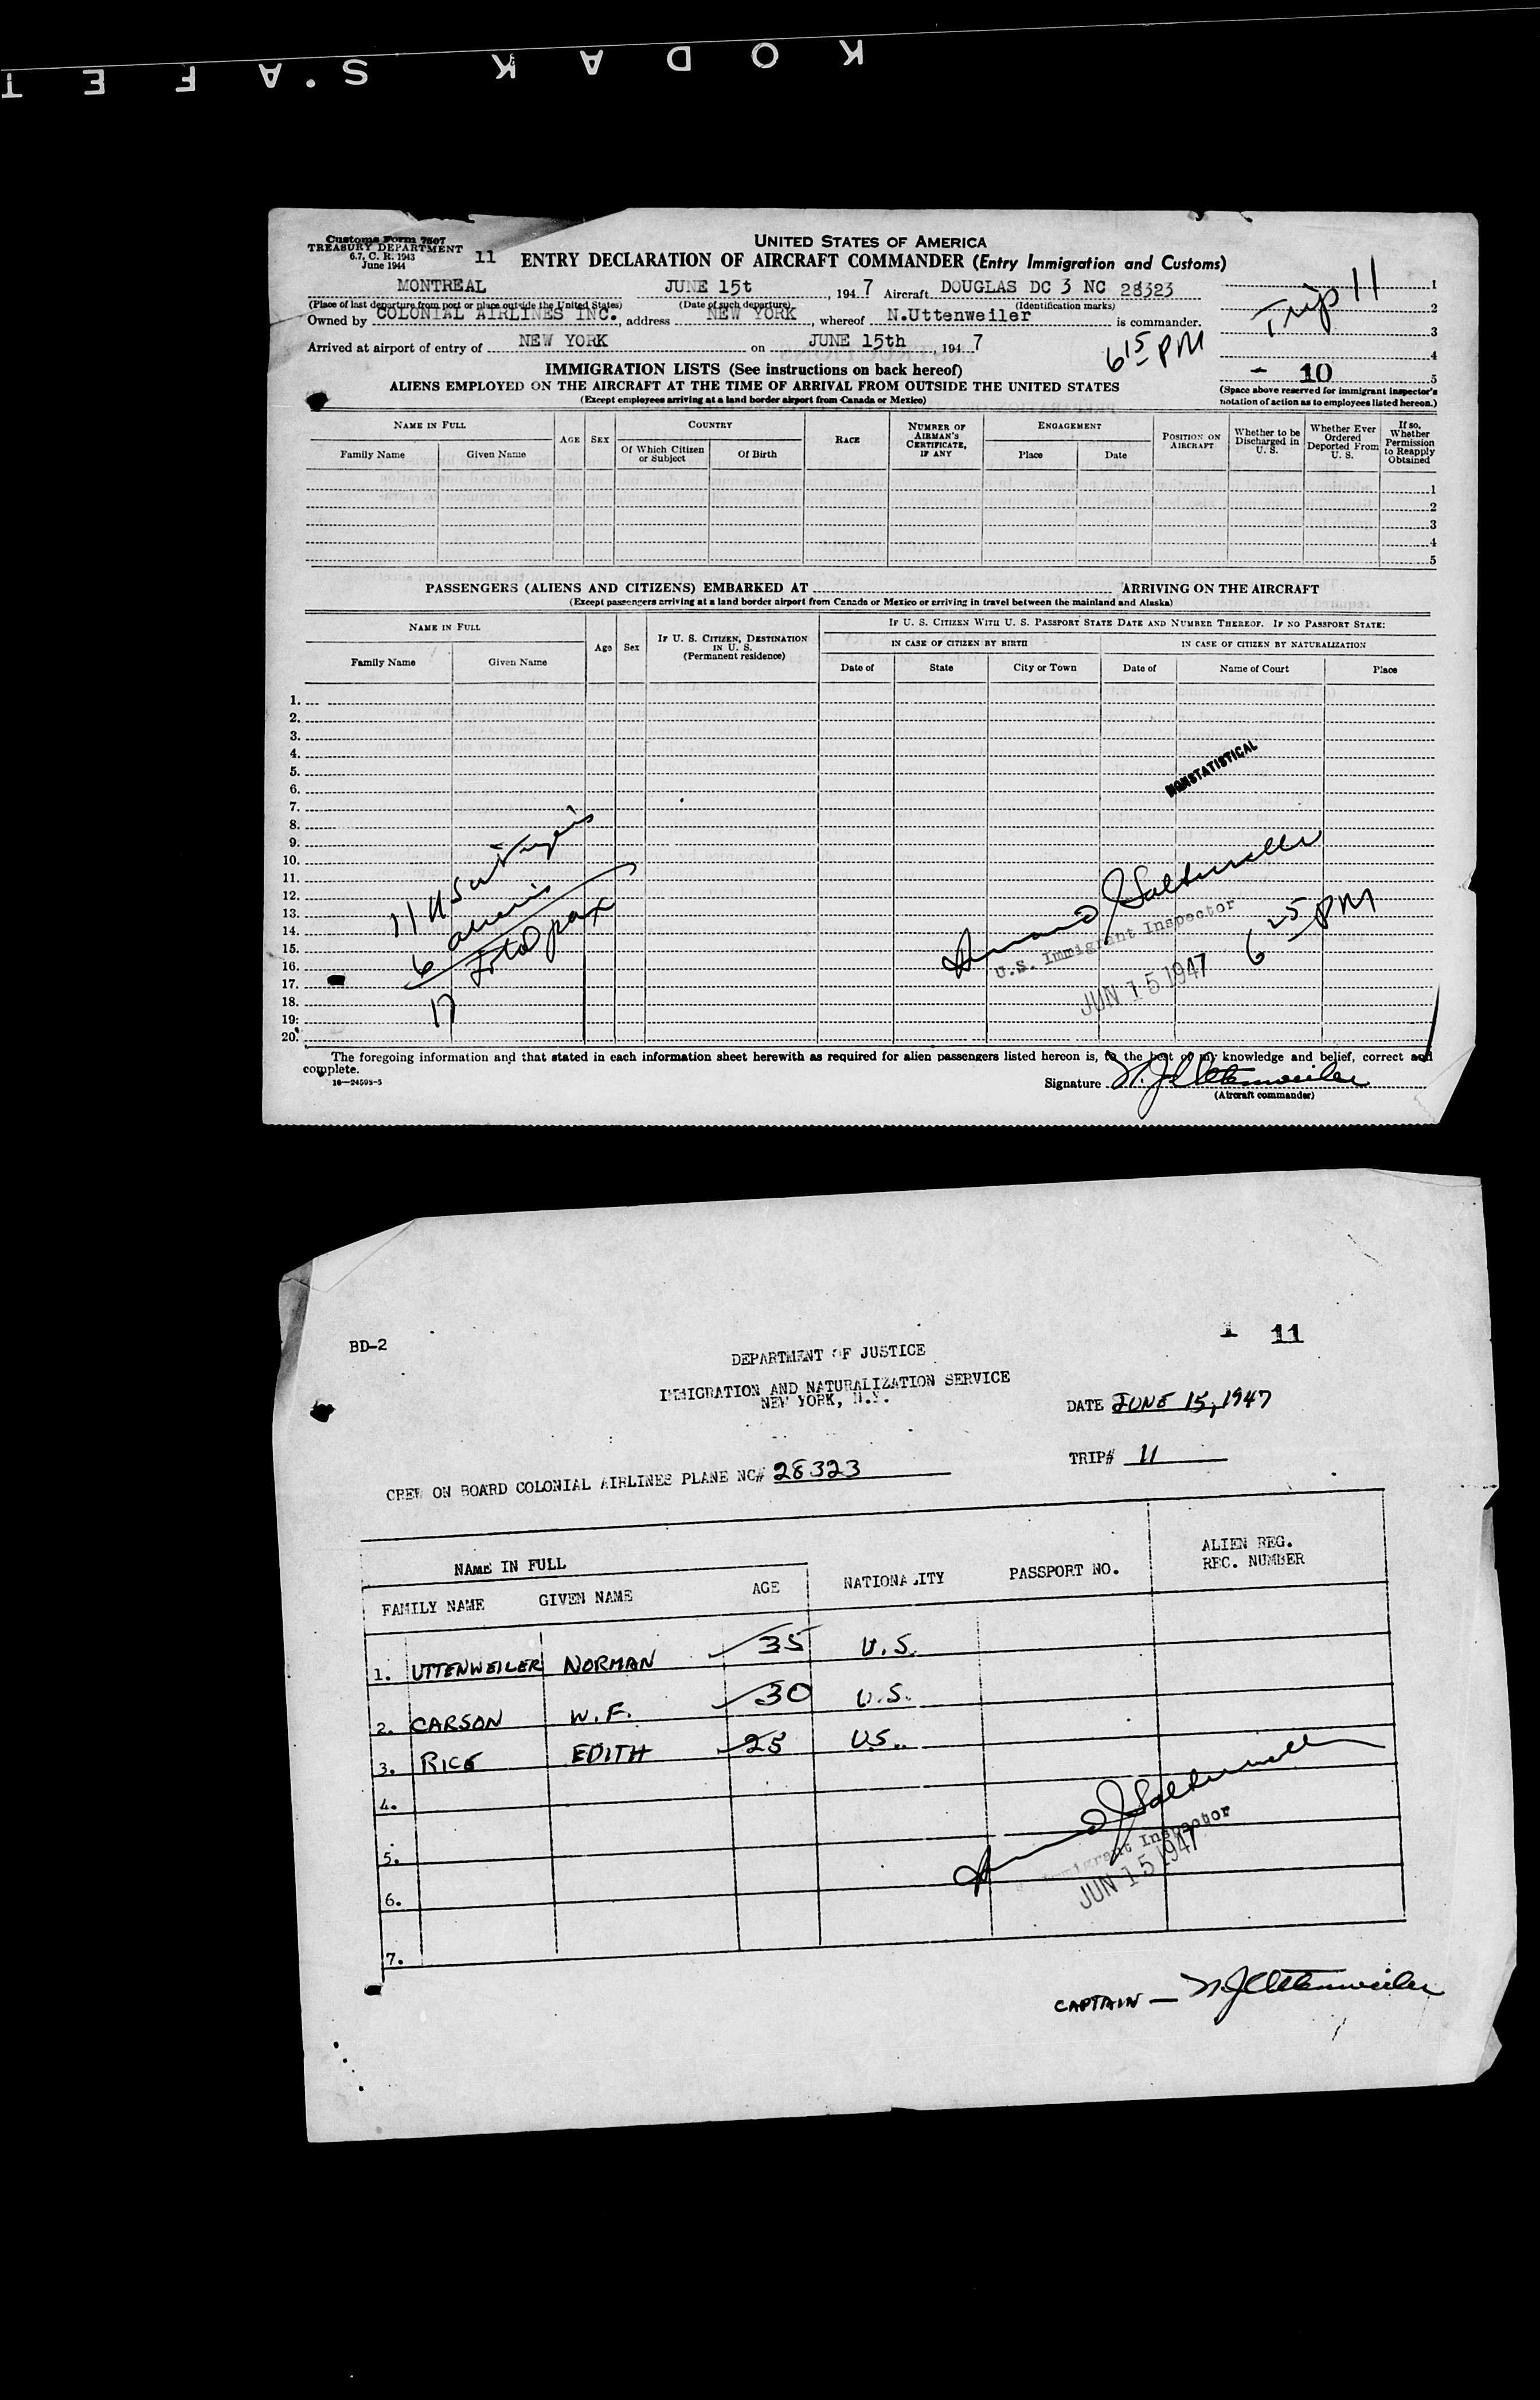 KODAK S.A F E T
Customs Form 7507
TREASURY DEPARTMENT
6.7, C. R. 1943
June 1944
11
UNITED STATES OF AMERICA
ENTRY DECLARATION OF AIRCRAFT COMMANDER (Entry Immigration and Customs)
MONTREAL JUNE 15t, 1947 Aircraft DOUGLAS DC 3 NC 28323
(Place of last departure from port or place outside the United States) (Date of such departure) (Identification marks)
Owned by COLONIAL AIRLINES INC., address NEW YORK, whereof N.Uttenweiler is commander.
Arrived at airport of entry of NEW YORK on JUNE 15th, 1947
6 15 PM
Trip 11
1
2
3
4
5
- 10
(Space above reserved for immigrant inspector's notation of action as to employees listed hereon.)
IMMIGRATION LISTS (See instructions on back hereof)
ALIENS EMPLOYED ON THE AIRCRAFT AT THE TIME OF ARRIVAL FROM OUTSIDE THE UNITED STATES
(Except employees arriving at a land border airport from Canada or Mexico)
NAME IN FULL
Family Name Given Name
AGE SEX
COUNTRY
Of Which Citizen or Subject Of Birth
RACE
NUMBER OF AIRMAN'S CERTIFICATE, IF ANY
ENGAGEMENT
Place Date
POSITION ON AIRCRAFT
Whether to be Discharged in U. S.
Whether Ever Ordered Deported From U. S.
If so, Whether Permission to Reapply Obtained
1
2
3
4
5
PASSENGERS (ALIENS AND CITIZENS) EMBARKED AT ARRIVING ON THE AIRCRAFT
(Except passengers arriving at a land border airport from Canada or Mexico or arriving in travel between the mainland and Alaska)
NAME IN FULL
Family Name Given Name
Age Sex
IF U. S. CITIZEN, DESTINATION IN U. S.
(Permanent residence)
IF U. S. CITIZEN WITH U. S. PASSPORT STATE DATE AND NUMBER THEREOF. IF NO PASSPORT STATE:
IN CASE OF CITIZEN BY BIRTH IN CASE OF CITIZEN BY NATURALIZATION
Date of State City or Town Date of Name of Court Place
1.
2.
3.
4.
5.
6.
7.
8.
9.
10.
11.
12.
13.
14.
15.
16.
17.
18.
19.
20.
NONSTATISTICAL
11 US
6 aliens
17 Total pax
U.S. Immigrant Inspector
JUN 15 1947
6 25 PM
The foregoing information and that stated in each information sheet herewith as required for alien passengers listed hereon is, to the best of my knowledge and belief, correct and
complete.
16—24593-5
Signature N. J. Uttenweiler
(Aircraft commander)
BD-2
1 11
DEPARTMENT OF JUSTICE
IMMIGRATION AND NATURALIZATION SERVICE
NEW YORK, N.Y.
DATE JUNE 15, 1947
TRIP# 11
CREW ON BOARD COLONIAL AIRLINES PLANE NC# 28323
NAME IN FULL
FAMILY NAME GIVEN NAME AGE NATIONALITY PASSPORT NO. ALIEN REG. REC. NUMBER
1. UTTENWEILER NORMAN 35 U.S.
2. CARSON W.F. 30 U.S.
3. RICE EDITH 25 U.S.
4.
5.
6.
7.
Immigrant Inspector
JUN 15 1947
CAPTAIN — N. J. Uttenweiler